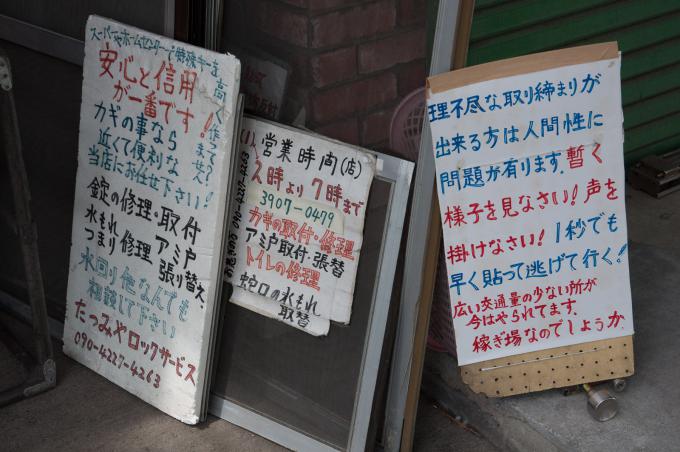 スーパーやホームセンターで特殊キーを
高く作ってませんか
安心と信用
が一番です!
カギの事なら
近くて便利な
当店にお任せ下さい!
錠の修理・取付
水もれ 修理 アミ戸
つまり 張り替え
水回り他なんでも
相談して下さい
たつみやロックサービス
090-4227-4263
営業時間(店)
時より7時まで
3907-0479
カギの取付・修理
アミ戸取付・張替
トイレの修理
蛇口の水もれ
取替
理不尽な取り締まりが
出来る方は人間性に
問題が有ります。暫く
様子を見なさい!声を
掛けなさい!1秒でも
早く貼って逃げて行く!
広い交通量の少ない所が
今はやられてます。
稼ぎ場なのでしょうか